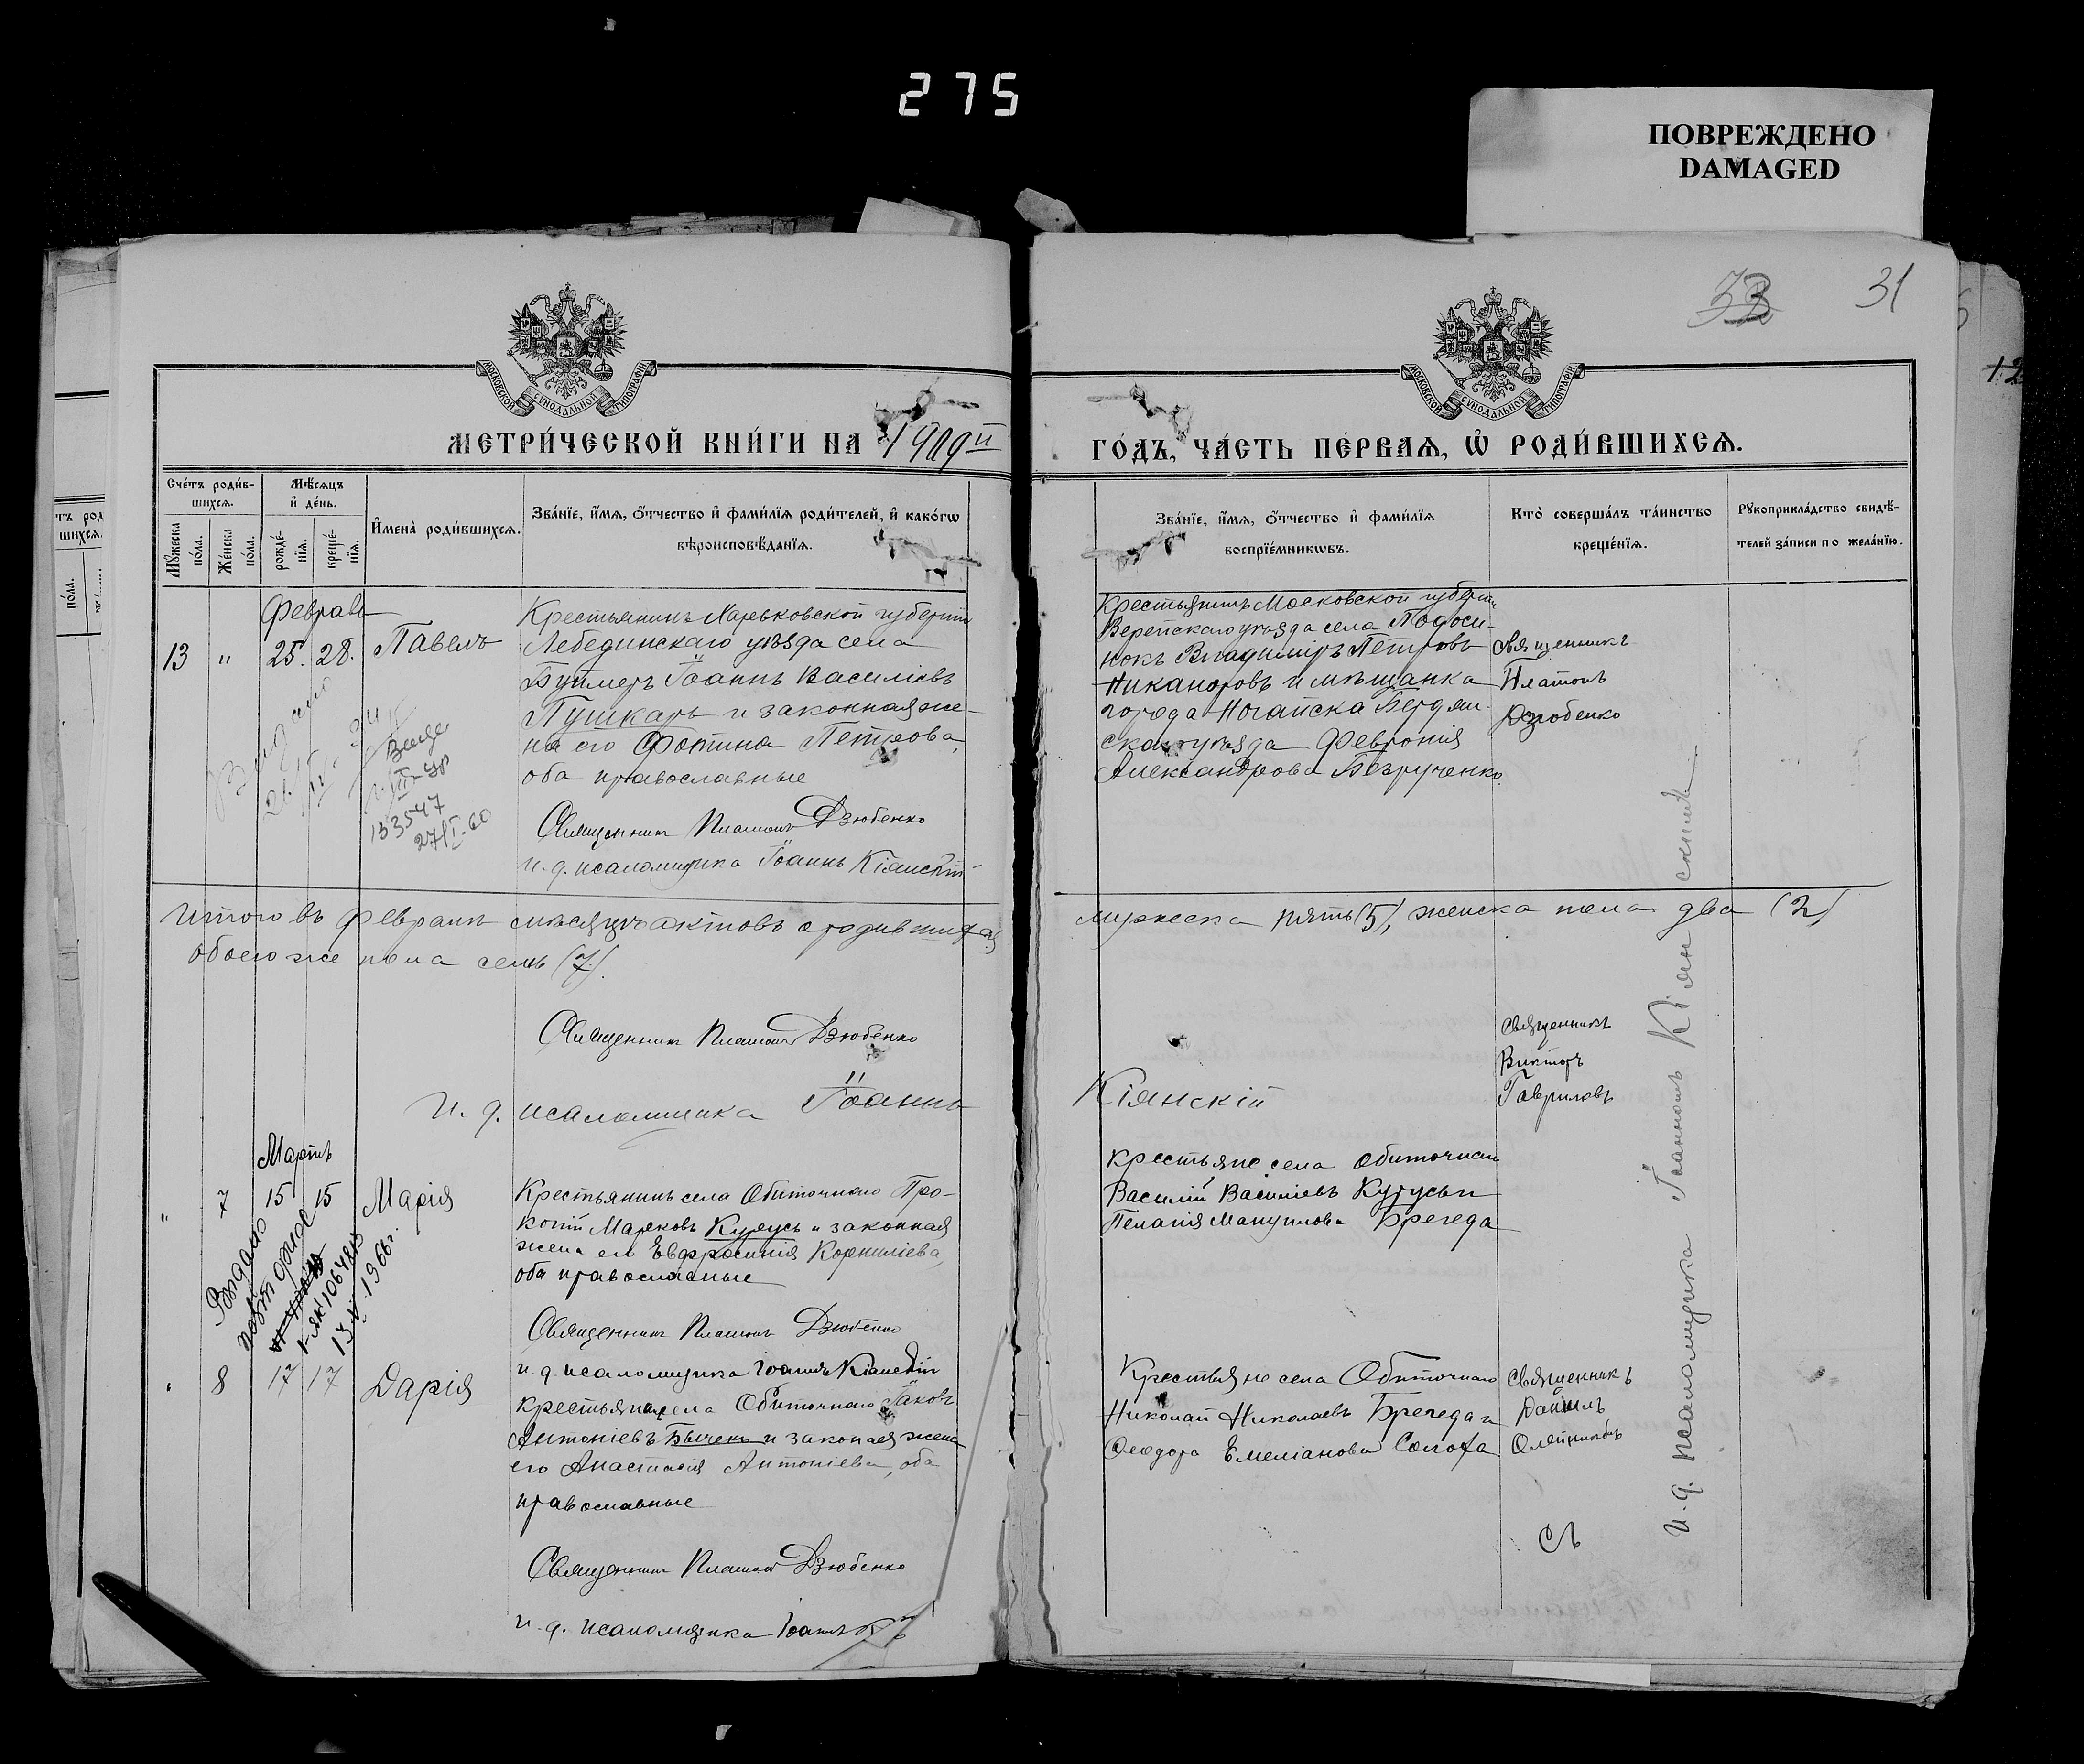 275
ПОВРЕЖДЕНО
DAMAGED
33 31
МОСКОВСКОЙ СУНОДАЛЬНОЙ ТИПОГРАФІИ
МОСКОВСКОЙ СУНОДАЛЬНОЙ ТИПОГРАФІИ
МЕТРИ́ЧЕСКОЙ КНИ́ГИ НА 1909й
ГО́ДЪ, ЧА́СТЬ ПЕ́РВАѦ, Ѡ҆ РОДИ́ВШИХСѦ.
Сче́тъ роди́в-
шихсѧ.
Мꙋ́жеска по́ла.
Же́нска по́ла.
Мѣ́сѧцъ
и҆ де́нь.
рожде́-
нїѧ.
креще́-
нїѧ.
И҆мена̀ роди́вшихсѧ.
Зва́нїе, и҆́мѧ, ѻ҆́тчество и҆ фами́лїѧ роди́телей, и҆ како́гѡ
вѣроисповѣ́данїѧ.
Зва́нїе, и҆́мѧ, ѻ҆́тчество и҆ фами́лїѧ
воспрїе́мникѡвъ.
Кто̀ соверша́лъ та́инство
креще́нїѧ.
Рꙋкоприкла́дство свидѣ́-
телей за́писи по жела́нїю.
Феврал
13 " 25. 28. Павелъ
Крестьянинъ Харьковской губерніи
Лебединскаго уѣзда села
Іоаннъ Василіевъ
Пушкарь и законная же-
на его Фотина Петрова,
оба православные
Священникъ Платонъ Дзюбенко
и. д. псаломщика Іоаннъ Кіянскій
133547
27/I-60
Крестьянинъ Московской губерніи
Верейскаго уѣзда села Подоси-
нокъ Владиміръ Петровъ
Никаноровъ и мѣщанка
города Ногайска Бердян-
скаго уѣзда Феврония
Александрова Безрученко.
Священникъ
Платонъ
Дзюбенко
Итого въ февралѣ мѣсяцѣ актовъ о родившихся
мужеска пять (5), женска пола два (2)
обоего же пола семь (7).
Священникъ Платонъ Дзюбенко
И. д. псаломщика Іоаннъ
Кіянскій
Мартъ
" 7 15 15 Марія
Крестьянинъ села Обиточнаго Про-
копій Марковъ Курусь и законная
жена его Евфросинія Корниліева,
оба православные
Священникъ Платонъ Дзюбенко
и. д. псаломщика Іоаннъ Кіянскій
Выдано
повторное
1966г
крестьяне села Обиточнаго
Василій Василіевъ Курусь и
Пелагія Мануилова Брегеда
священникъ
Викторъ
Гавриловъ
" 8 17 17 Дарія
крестьянинъ села Обиточнаго Іаковъ
Антоніевъ Бычекъ и законная жена
его Анастасія Антоніева, оба
православные
Священникъ Платонъ Дзюбенко
и. д. псаломщика Іоаннъ К
Крестьяне села Обиточнаго
Николай Николаевъ Брегеда и
Феодора Емеліанова Солоха
священникъ
Даніилъ
Олейниковъ
Съ
и. д. псаломщика Іоанномъ Кіянскимъ
12